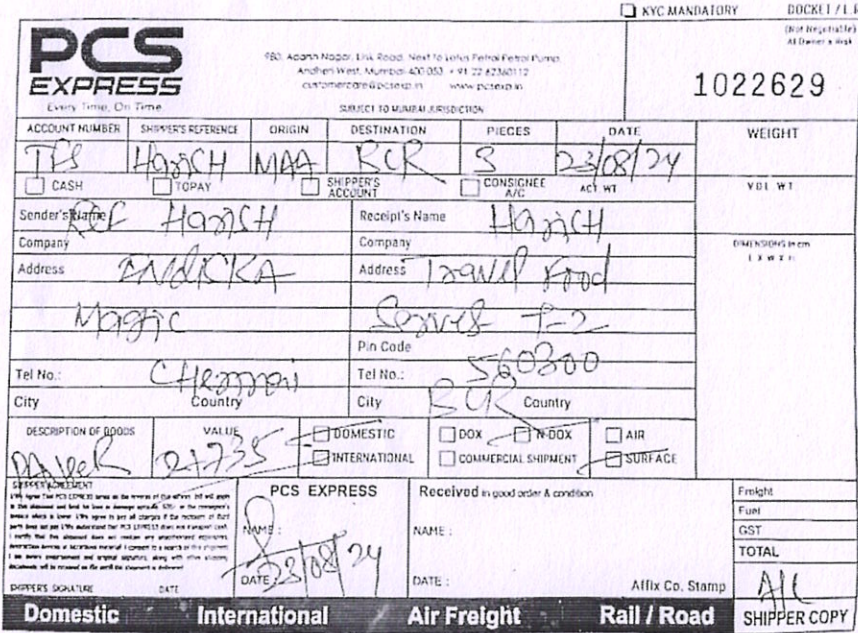 KYC MANDATORY DOCKET / L.R
(Not Negotiable)
At Owner's Risk
PCS
EXPRESS
Every Time, On Time
980, Adarsh Nagar, Link Road, Next to Lotus Petrol Petrol Pump,
Andheri West, Mumbai-400 053. + 91 22 62360112
customercare@pcsexp.in www.pcsexp.in
SUBJECT TO MUMBAI JURISDICTION
1022629
ACCOUNT NUMBER SHIPPER'S REFERENCE ORIGIN DESTINATION PIECES DATE WEIGHT
TFS Harish MAA BLR 3 23/08/24
CASH TOPAY SHIPPER'S ACCOUNT CONSIGNEE A/C ACT. WT VOL. WT
Sender's Name Harish
Receipt's Name Harish
Company
Company
DIMENSIONS in cm
L X W X H
Address
Address Travel Food
Magic
Serves T-2
Pin Code 560300
Tel No.: Chennai
Tel No.:
City Country
City BLR Country
DESCRIPTION OF GOODS VALUE DOMESTIC DOX N-DOX AIR
21735 INTERNATIONAL COMMERCIAL SHIPMENT SURFACE
SHIPPER'S AGREEMENT
SHIPPER'S SIGNATURE DATE
PCS EXPRESS
NAME :
DATE : 23/08/24
Received in good order & condition
NAME :
DATE : Affix Co. Stamp
Freight
Fuel
GST
TOTAL
A/C
Domestic International Air Freight Rail / Road SHIPPER COPY